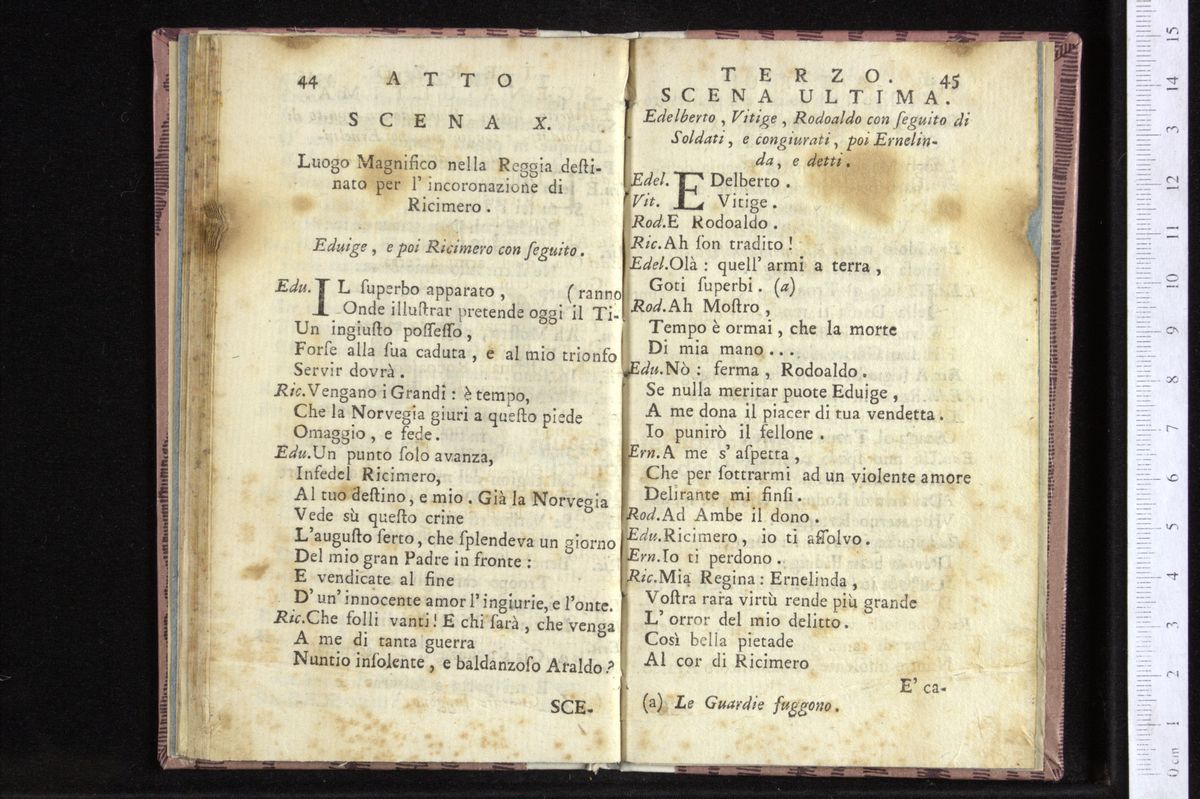 44 ATTO
SCENA X.
Luogo Magnifico nella Reggia deſti-
nato per l' incoronazione di
Ricimero.
Eduige, e poi Ricimero con ſeguito.
Edu. IL ſuperbo apparato, (ranno
Onde illuſtrar pretende oggi il Ti-
Un ingiuſto poſſeſſo,
Forſe alla ſua caduta, e al mio trionfo
Servir dovrà.
Ric. Vengano i Grandi: è tempo,
Che la Norvegia giuri a queſto piede
Omaggio, e fede.
Edu. Un punto ſolo avanza,
Infedel Ricimero,
Al tuo deſtino, e mio. Già la Norvegia
Vede sù queſto crine
L'auguſto ſerto, che ſplendeva un giorno
Del mio gran Padre in fronte:
E vendicate al fine
D' un' innocente amor l' ingiurie, e l'onte.
Ric. Che folli vanti! E chi ſarà, che venga
A me di tanta guerra
Nuntio inſolente, e baldanzoſo Araldo?
SCE-
TERZO. 45
SCENA ULTIMA.
Edelberto, Vitige, Rodoaldo con ſeguito di
Soldati, e congiurati, poi Ernelin-
da, e detti.
Edel. EDelberto.
Vit. Vitige.
Rod. E Rodoaldo.
Ric. Ah ſon tradito!
Edel. Olà: quell' armi a terra,
Goti ſuperbi. (a)
Rod. Ah Moſtro,
Tempo è ormai, che la morte
Di mia mano...
Edu. Nò: ferma, Rodoaldo.
Se nulla meritar puote Eduige,
A me dona il piacer di tua vendetta.
Io punirò il fellone.
Ern. A me s' aſpetta,
Che per ſottrarmi ad un violente amore
Delirante mi finſi.
Rod. Ad Ambe il dono.
Edu. Ricimero, io ti aſſolvo.
Ern. Io ti perdono.
Ric. Mia Regina: Ernelinda,
Voſtra rara virtù rende più grande
L' orror del mio delitto.
Così bella pietade
Al cor di Ricimero
E' ca-
(a) Le Guardie fuggono.
0 cm 1 2 3 4 5 6 7 8 9 10 11 12 13 14 15